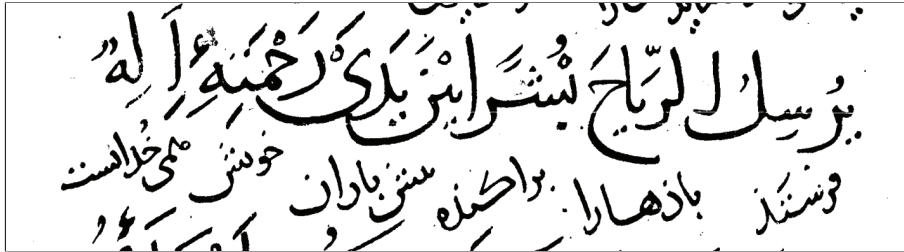 يُرسِلُ الرِّيَاحَ بُشَرًا بَيْنَ يَدَىْ رَحْمَتِهِ ءَاِلهٌ
فرستند باذهارا براكنده پیش باران خویش همی خدانست